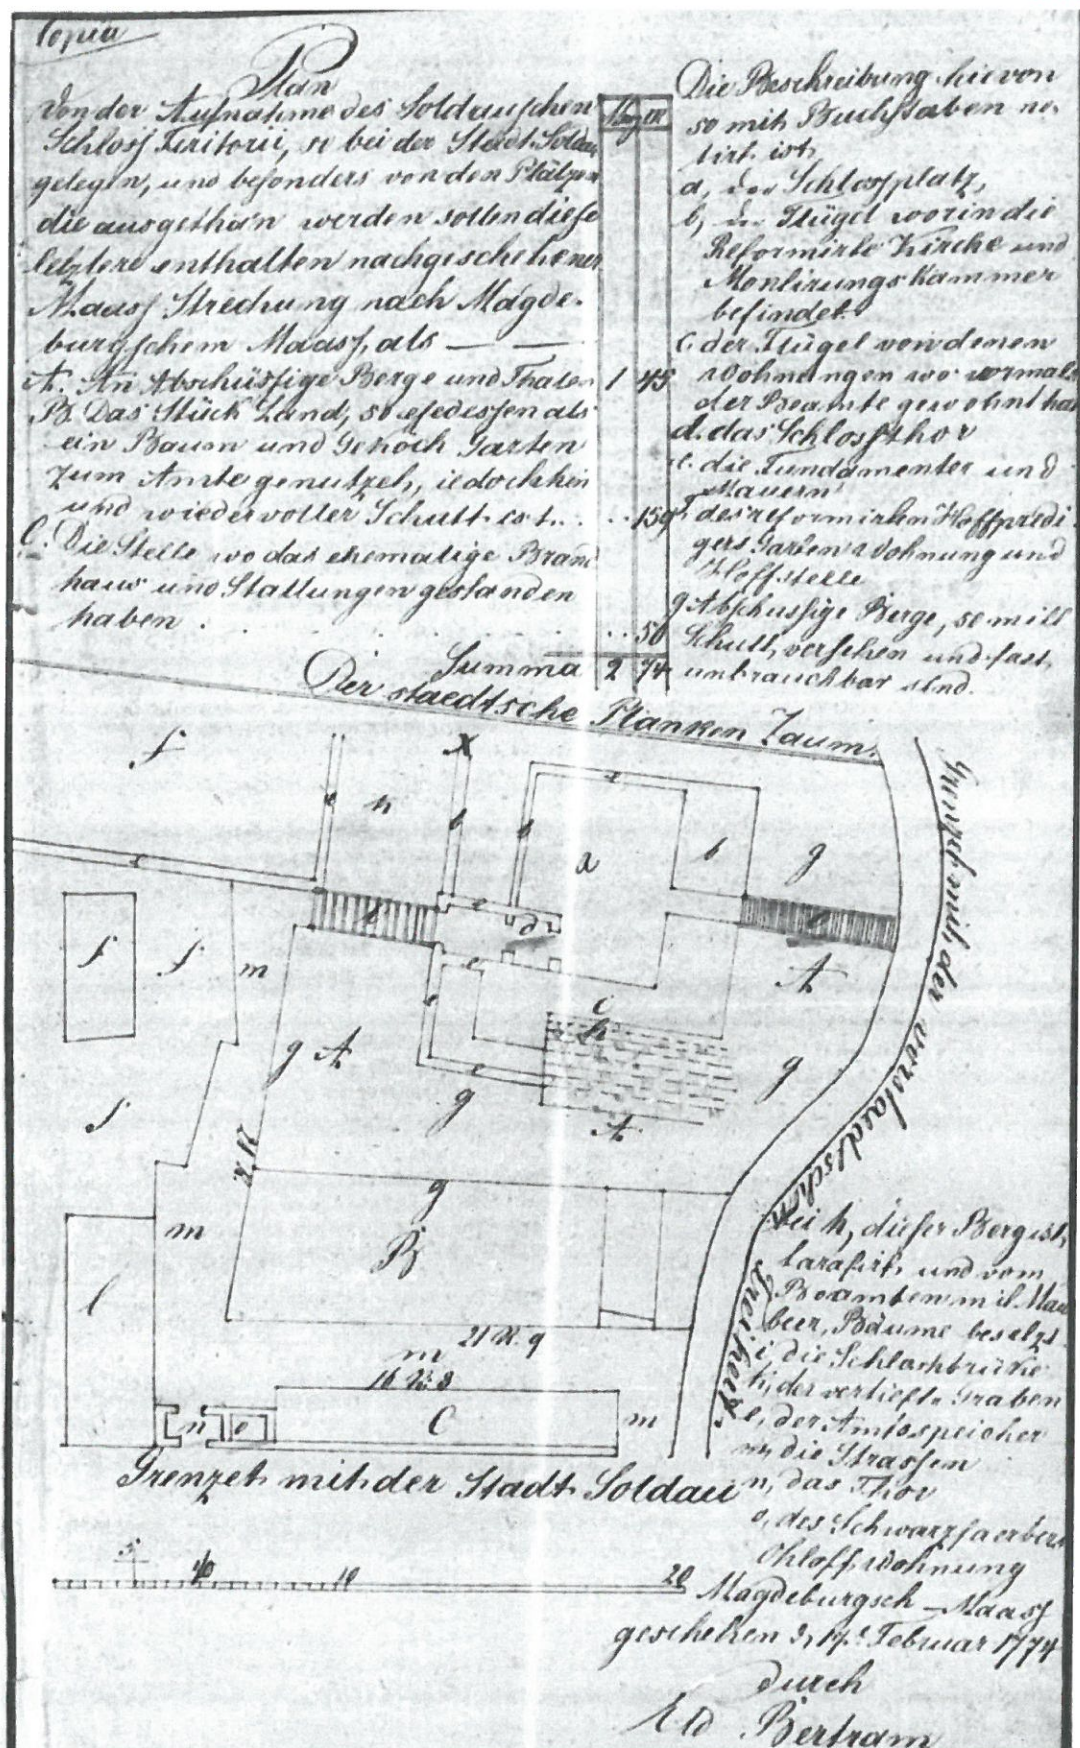 Copia
Plan
Von der Aufnahme des Soldauschen
Schloss Teritorii, so bei der Stadt Soldau
gelegen, und besonders von den Plätzen
die ausgethan werden sollen diese
letztere enthalten nachgeschehener
Maass Strechung nach Magde-
burgschem Maass, als
A. An Abschüssige Berge und Thäler 1 45
B. Das Stück Land, so ehedessen als
ein Baum und Gekoch Garten
zum Amte genutzet, iedoch hin
und wieder voller Schutt ist . . . . 159
C. Die Stelle wo das ehemalige Brand
haus und Stallungen gestanden
haben . . . . . . . 50
Summa 2 74
Die Beschreibung hievon
so mit Buchstaben no-
tirt ist
a, der Schlossplatz,
b, der Flügel worin die
Reformirte Kirche und
Montirungs Kammer
befindet.
c. der Flügel von denen
Wohnungen wo vormals
der Beamte gewohnt hat
d. das Schlossthor
e. die Fundamenter und
Mauern
f. des reformirten Hoffpredi-
gers Garten Wohnung und
Hoffstelle
g Abschussige Berge, so mitt
Schutt, versehen und fast
unbrauchbar sind.
Der staedtsche Planken Zaum.
f
X
h
e
b
b
e
a
b
g
e
e
d
f
f
m
e
e
A
c
h
g A
g
e
g
A
f
g
m
B
l
21 R. 9
m
16 R. 8
n
o
C
m
Grenzet mit der vorstaedtschen
Freiheit.
bei h, dieser Berg ist
tarasirt und vom
Beamten mit Mau
beer, Bäume besetzt
i, die Schlossbrücke
k, der vertiefte Graben
l, der Amtsspeicher
m, die Strassen
n, das Thor
o, des Schwarzfaerbers
Ohloff Wohnung
Grenzet mit der Stadt Soldau
5 10 10 20
Magdeburgsch Maass
geschehen d, 17t Februar 1774
durch
Bertram